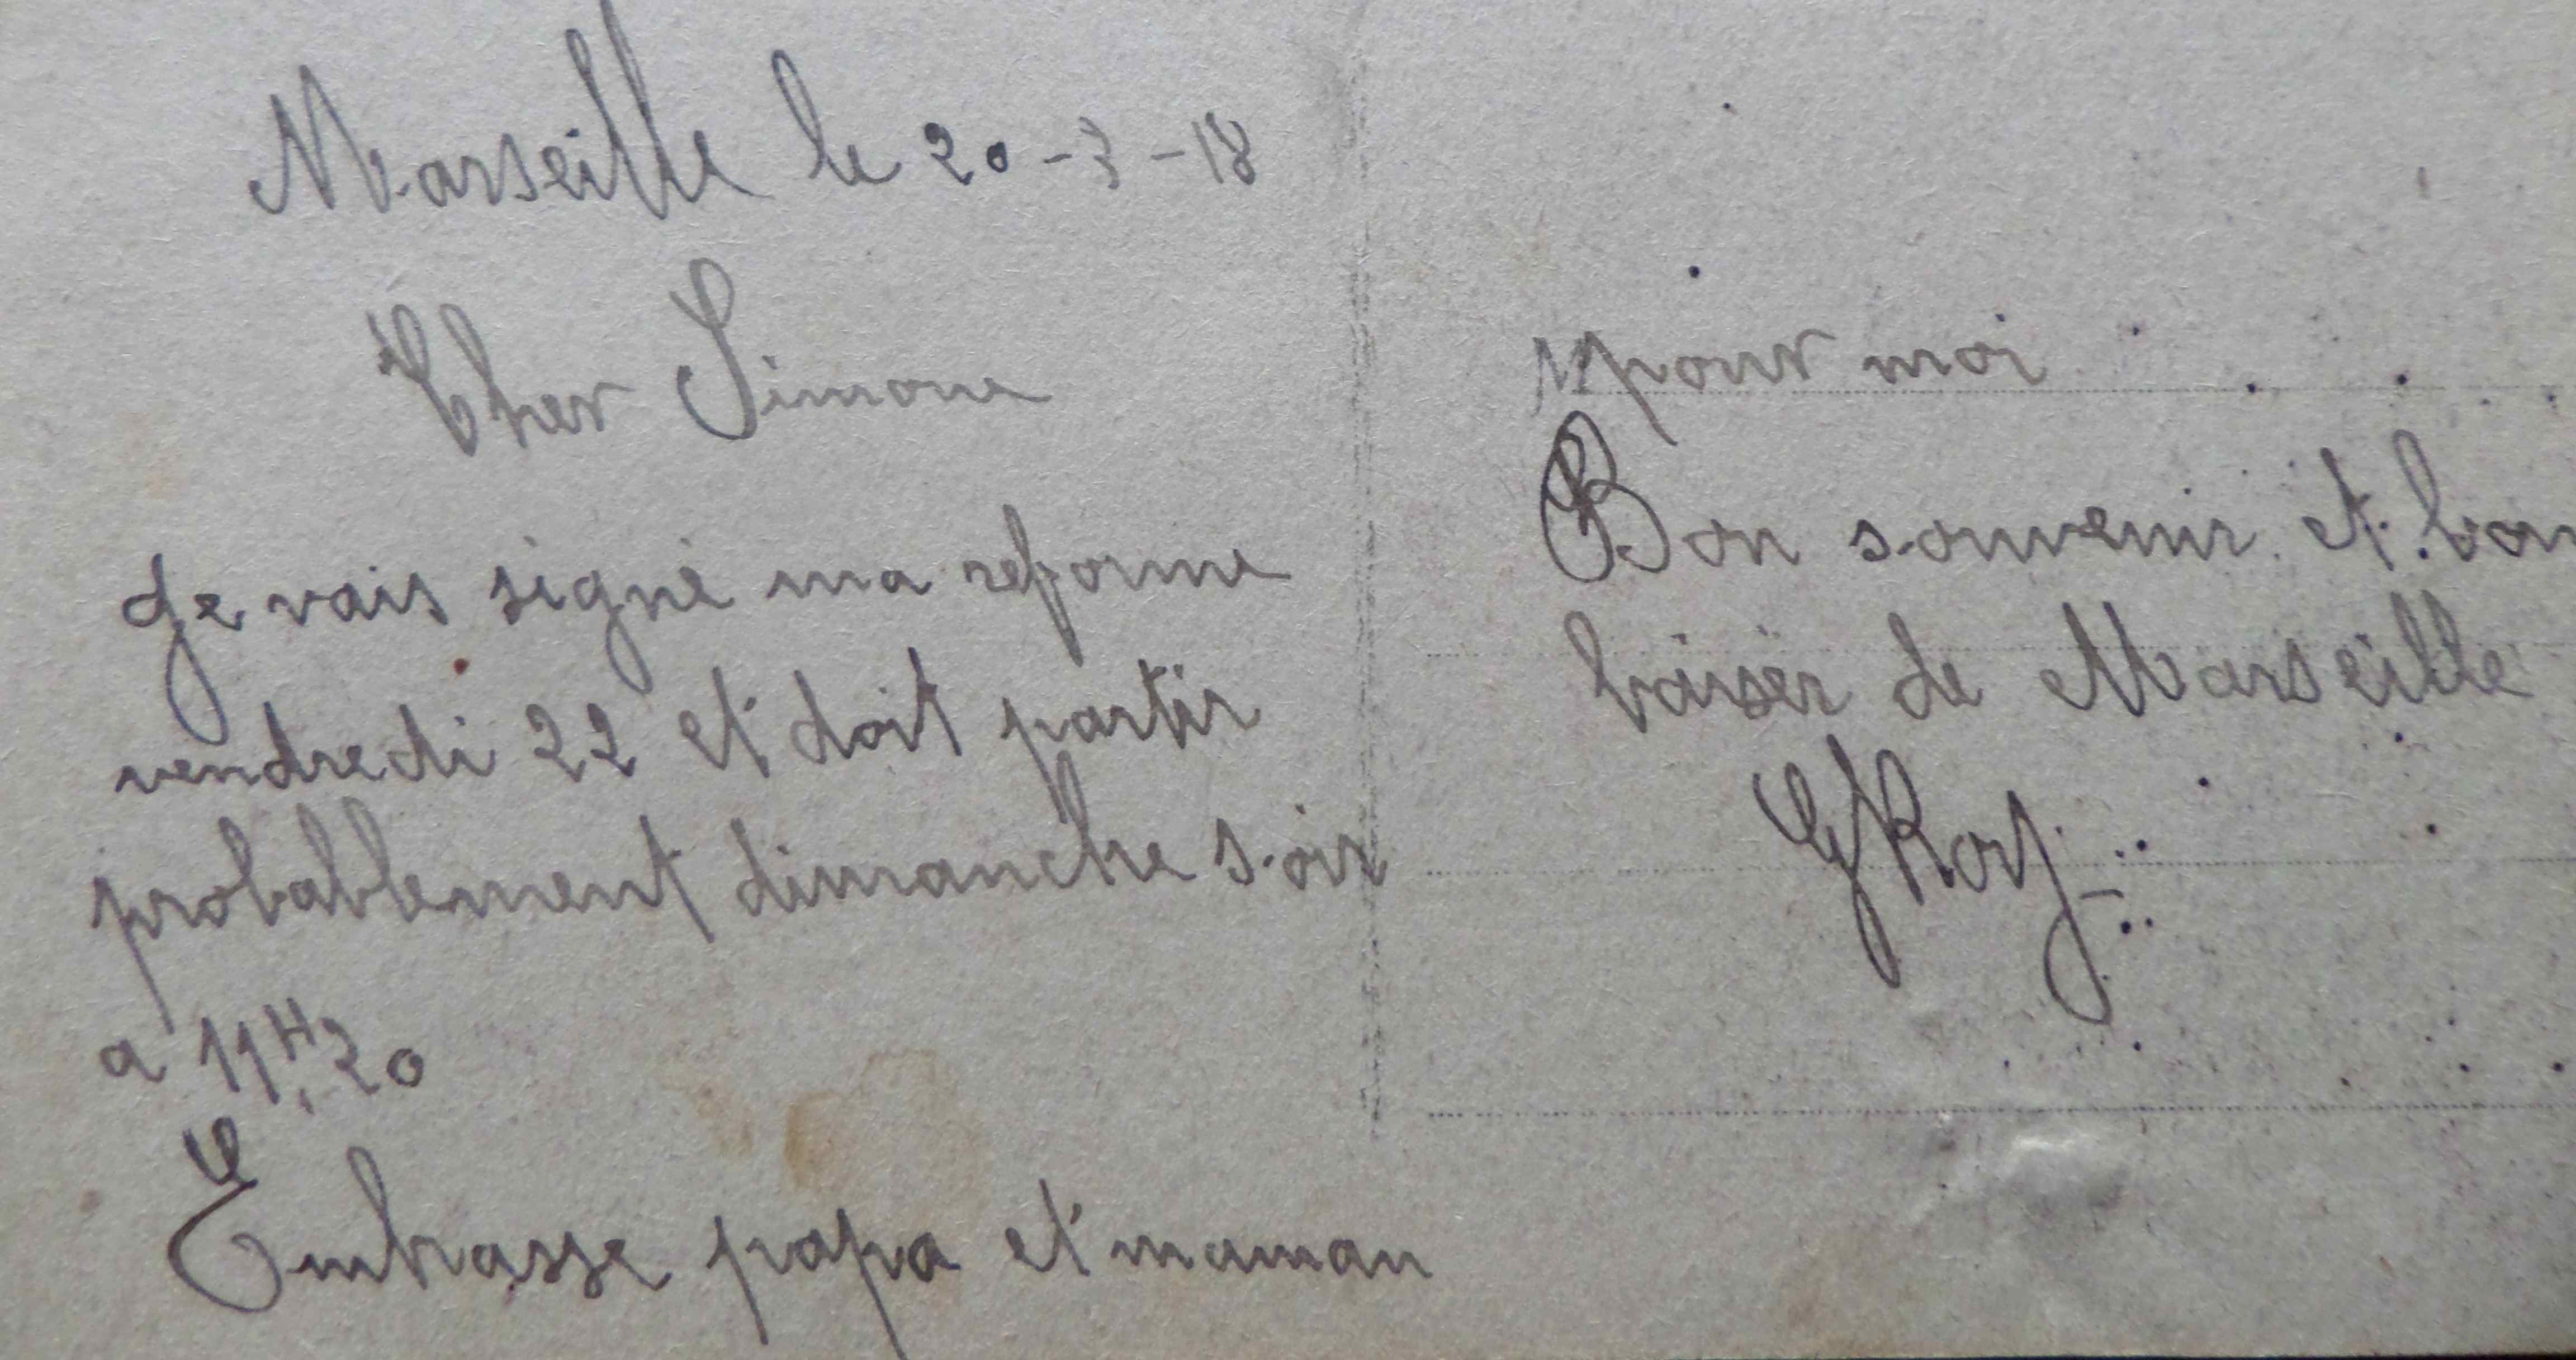 Marseille le 20-3-18
Cher Simone
Je vais signé ma reforme
vendredi 22 et doit partir
probablement dimanche soir
a 11H20
Embrasse papa et maman
pour moi
Bon souvenir et bon
baiser de Marseille
GRoy